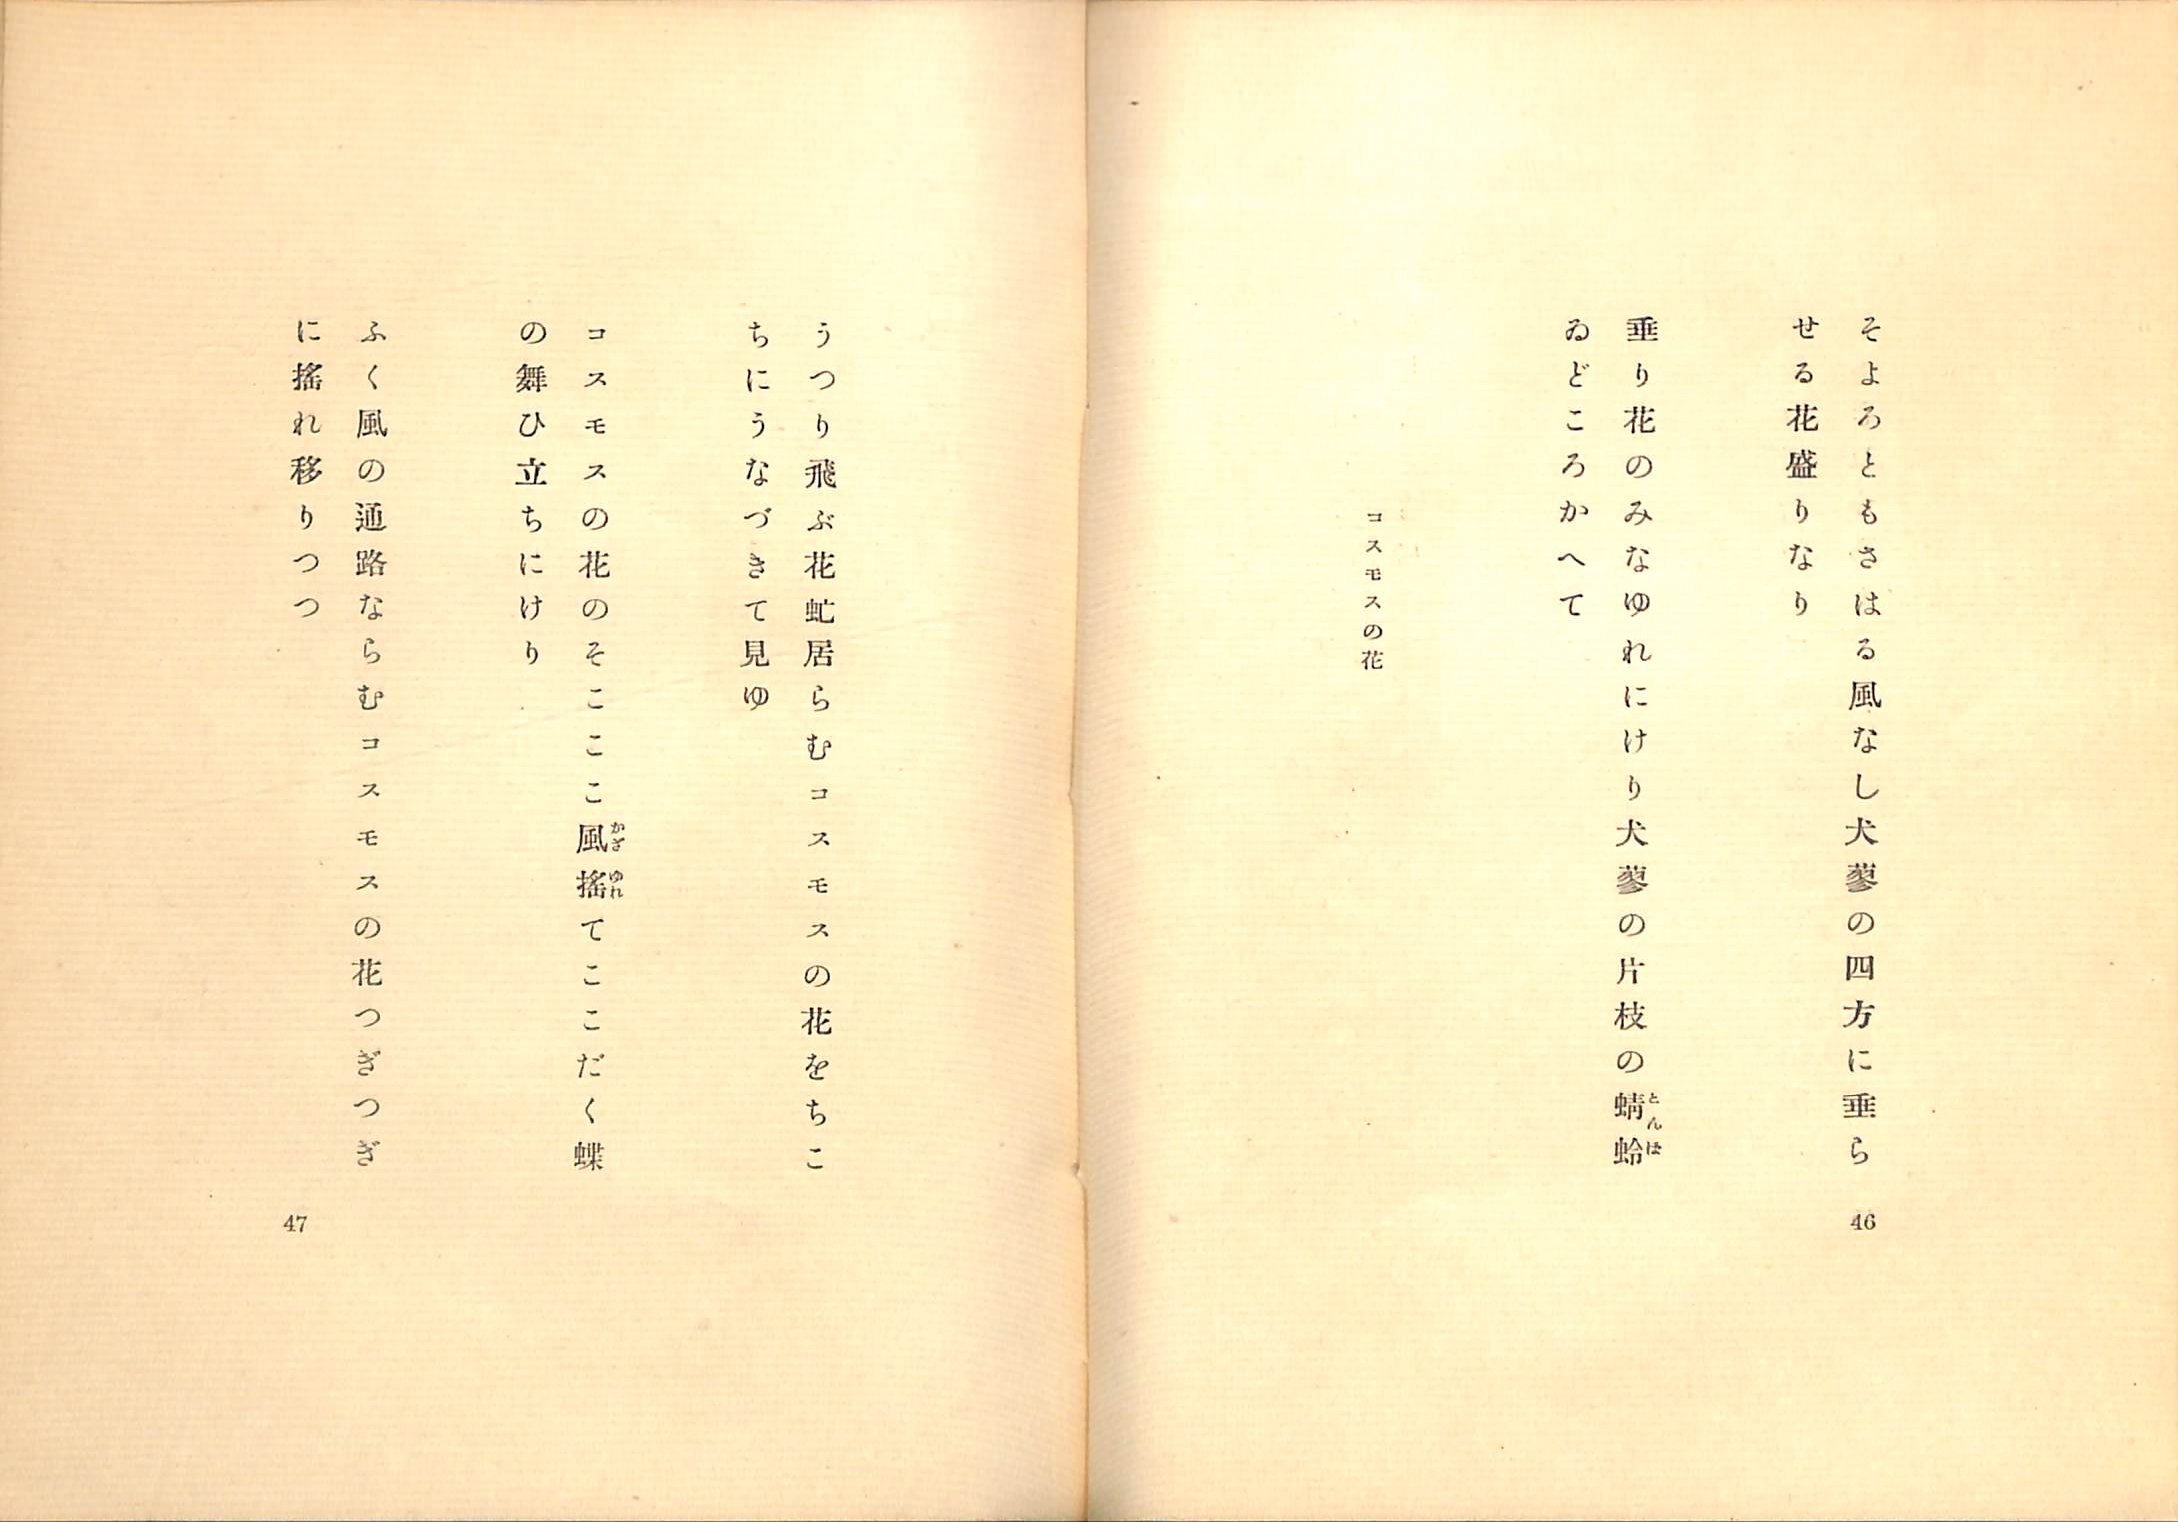 そよろともさはる風なし犬蓼の四方に垂ら
せる花盛りなり
垂り花のみなゆれにけり犬蓼の片枝の蜻蛉
とんぼ
ゐどころかへて
コスモスの花
46
うつり飛ぶ花虻居らむコスモスの花をちこ
ちにうなづきて見ゆ
コスモスの花のそこここ風搖てここだく蝶
かざゆれ
の舞ひ立ちにけり
ふく風の通路ならむコスモスの花つぎつぎ
に搖れ移りつつ
47